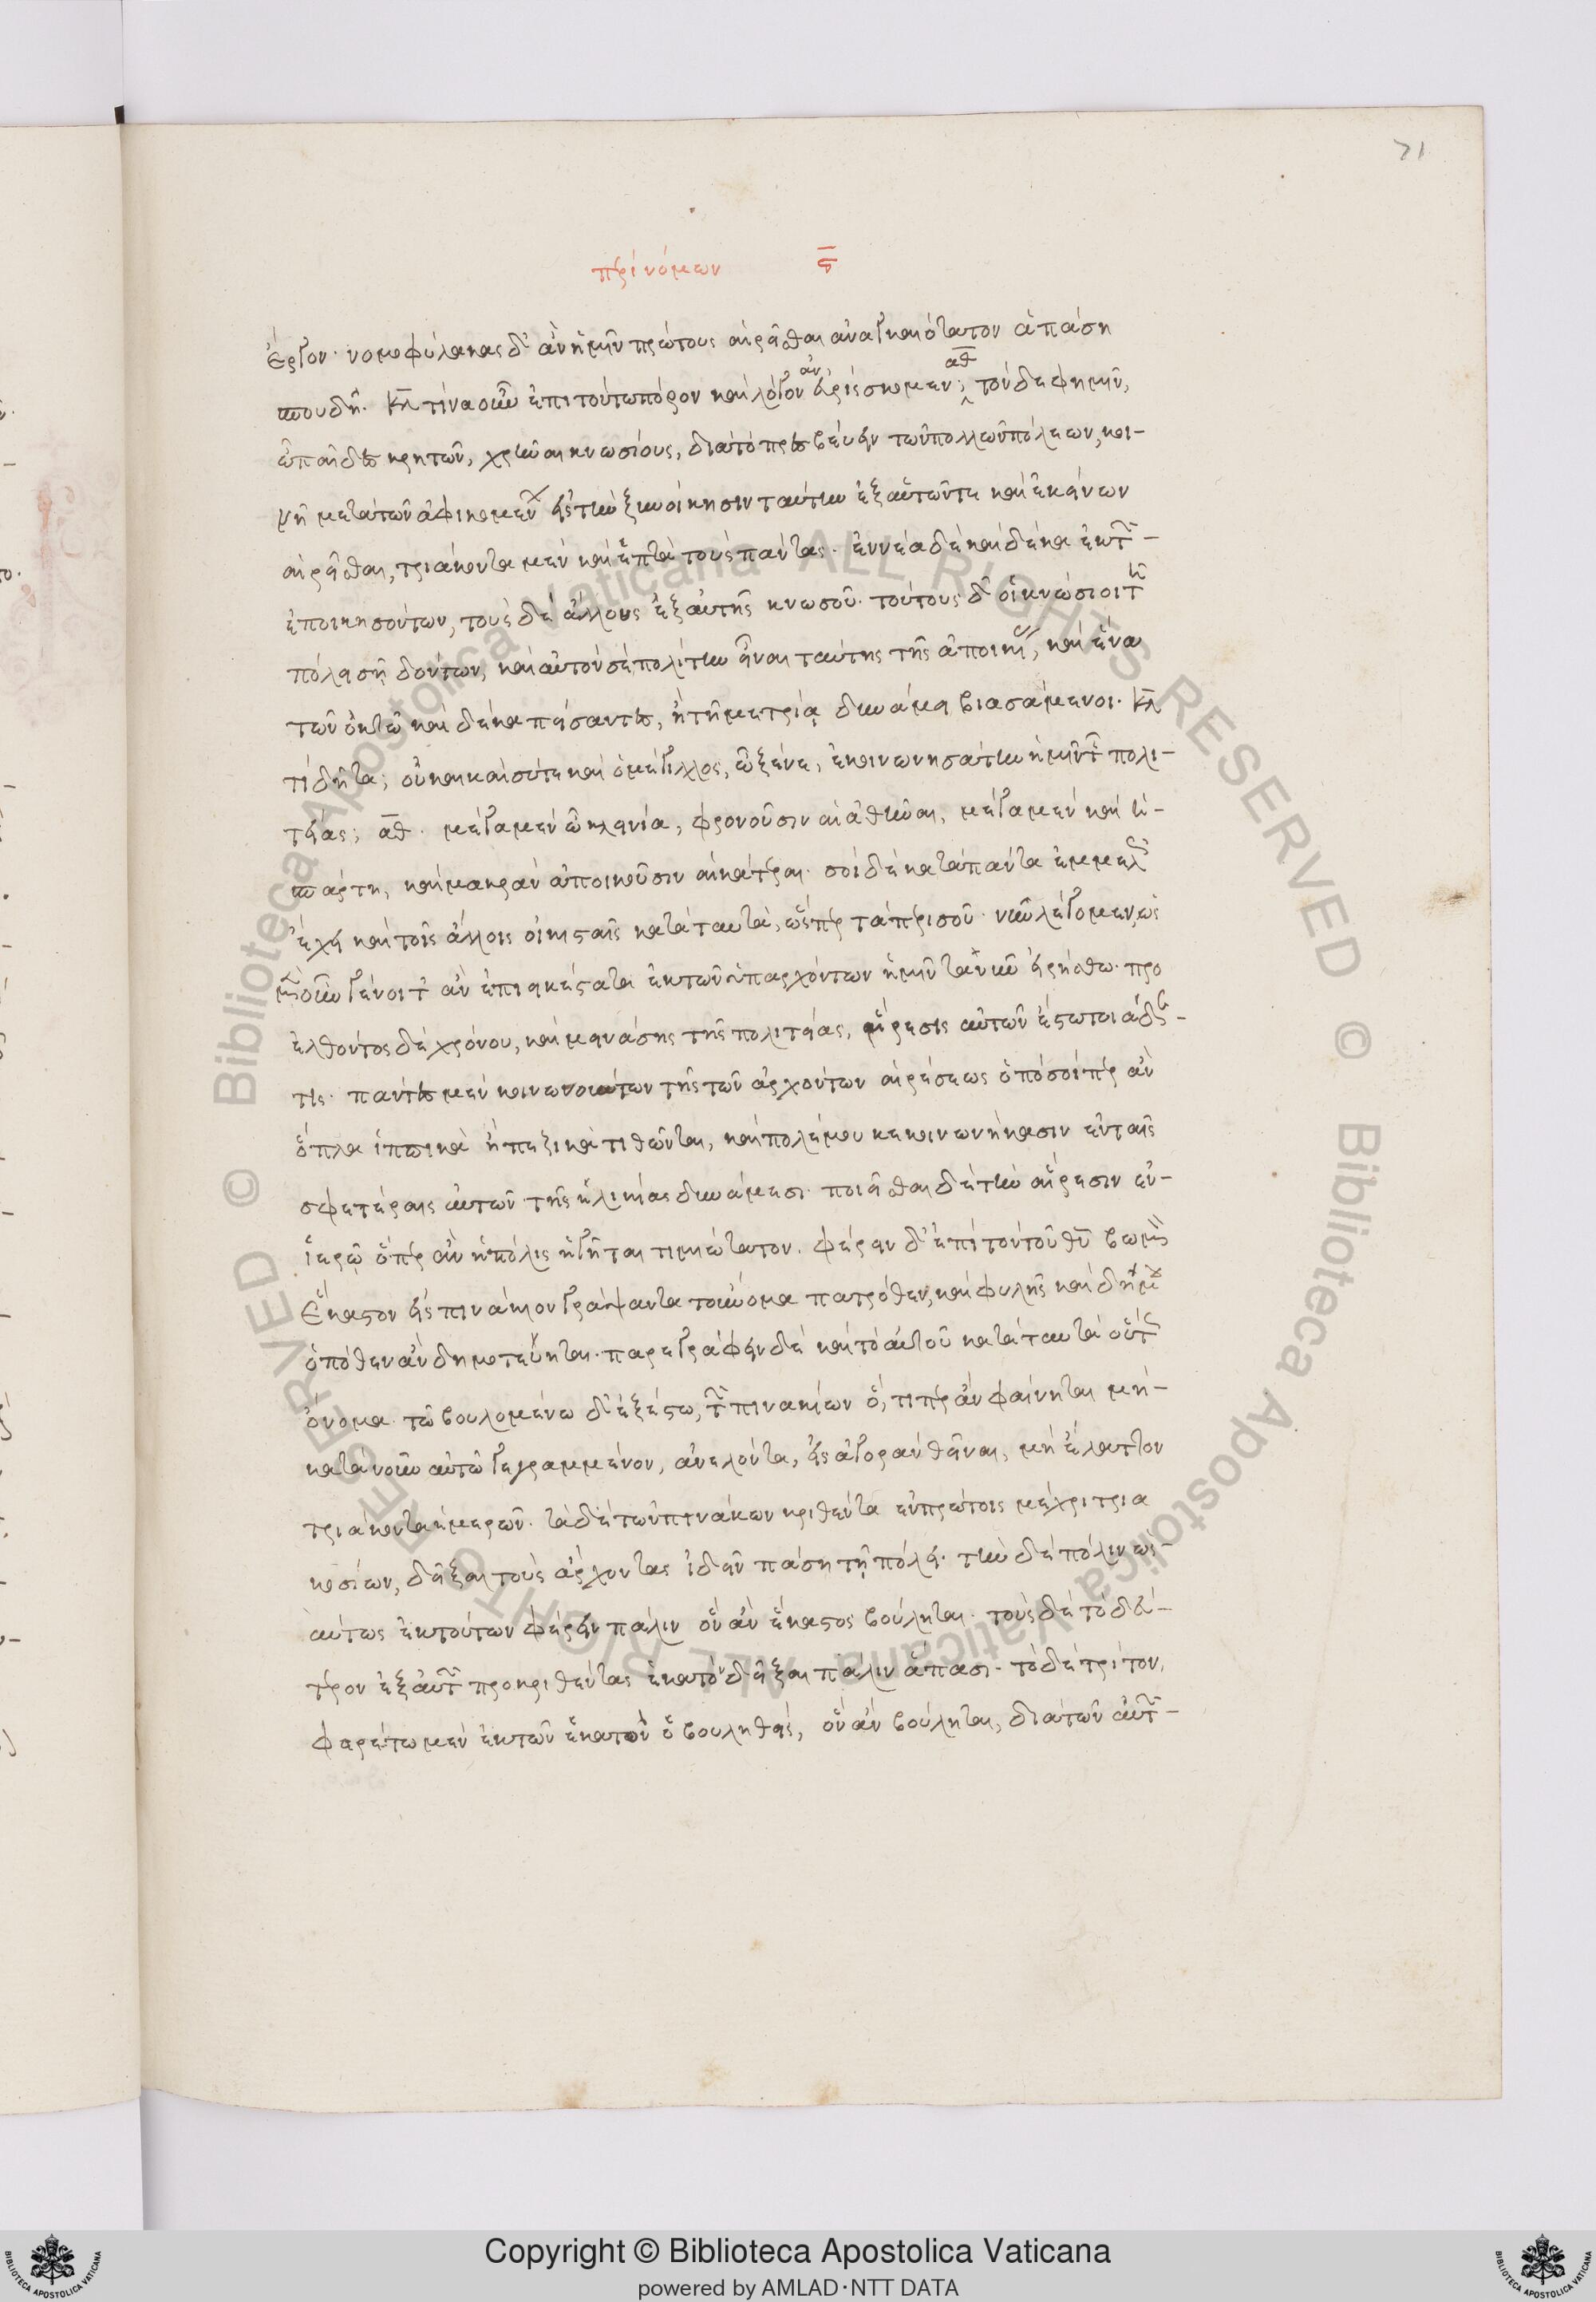 71
περὶ νόμων ϛ
ἔργον· νομοφύλακας δ' ἂν ἡμῖν πρώτους αἱρεῖσθαι ἀναγκαιότατον ἁπάσῃ
σπουδῇ. κλ τίνα οὖν ἐπὶ τούτω πόρον καὶ λόγον ἂν εὑρίσκομεν; αθ τόνδε φημῖν,
ὦ παῖδες κρητῶν, χρῆναι κνωσίους, διὰ τὸ πρεσβεύειν τῶν πολλῶν πόλεων, κοι-
νῇ μετὰ τῶν ἀφικομένων εἰς τὴν ξυνοίκησιν ταύτην ἐξ αὑτῶν τε καὶ ἐκείνων
αἱρεῖσθαι, τριάκοντα μὲν καὶ ἑπτὰ τοὺς πάντας. ἐννέα δὲ καὶ δέκα ἐκ τῶν
ἐποικησόντων, τοὺς δὲ ἄλλους ἐξ αὐτῆς κνωσοῦ. τούτους δ' οἱ κνώσιοι τῇ
πόλει σῇ δόντων, καὶ αὐτόν σε πολίτην εἶναι ταύτης τῆς ἀποικίας, καὶ ἕνα
τῶν ὀκτὼ καὶ δέκα πείσαντες, ἢ τῇ μετρίᾳ δυνάμει βιασάμενοι. κλ
τί δῆτα; οὐ καὶ καὶ σύ τε καὶ ὁ μέγιλλος, ὦ ξένε, ἐκοινωνησάτην ἡμῖν τῆς πολι-
τείας; αθ. μέγα μὲν ὦ κλεινία, φρονοῦσιν αἱ ἀθῆναι, μέγα μὲν καὶ ἡ
σπάρτη, καὶ μακρὰν ἀποικοῦσιν ἑκάτεραι. σοὶ δὲ κατὰ πάντα ἐμμελῶς
ἔχει καὶ τοῖς ἄλλοις οἰκισταῖς κατὰ ταυτὰ, ὥσπερ τὰ περὶ σοῦ νῦν λέγομεν, ὡς
μὲν οὖν γένοιτ' ἂν ἐπιεικέστατα ἐκ τῶν ὑπαρχόντων ἡμῖν τανῦν εἰρήσθω. προ
ελθόντος δὲ χρόνου, καὶ μεινάσης τῆς πολιτείας, αἵρεσις αὐτῶν ἔστω τοιάδε
τις. πάντες μὲν κοινωνούντων τῆς τῶν ἀρχόντων αἱρέσεως ὁπόσοιπερ ἂν
ὅπλα ἱππικὰ ἢ πεζικὰ τιθῶνται, καὶ πολέμου κεκοινωνήκασιν ἐν ταῖς
σφετέραις αὐτῶν τῆς ἡλικίας δυνάμεσι. ποιεῖσθαι δὲ τὴν αἵρεσιν ἐν
ἱερῷ ὅπερ ἂν ἡ πόλις ἡγῆται τιμιώτατον. φέρειν δ' ἐπὶ τὸν τοῦ θυ βωμὸν
Ἕκαστον εἰς πινάκιον γράψαντα τοὔνομα πατρόθεν, καὶ φυλῆς καὶ δήμου
ὁπόθεν ἂν δημοτεύηται. παρεγράφειν δὲ καὶ τὸ αὑτοῦ κατὰ ταυτὰ οὕτως
ὄνομα. τῶ βουλομένω δ' ἐξέστω, τῶν πινακίων ὅ, τι περ ἂν φαίνηται μὴ
κατὰ νοῦν αὐτῶ γεγραμμένον, ἀνελόντα, εἰς ἀγορὰν θεῖναι, μὴ ἔλαττον
τριάκοντα ἡμερῶν. τὰ δὲ τῶν πινάκων κριθέντα ἐν πρώτοις μέχρι τρια
κοσίων, δεῖξαι τοὺς ἄρχοντας ἰδεῖν πάσῃ τῇ πόλει. τὴν δὲ πόλιν ὡς-
αύτως ἐκ τούτων φέρειν πάλιν ὃν ἂν ἕκαστος βούληται. τοὺς δὲ τὸ δεύ-
τερον ἐξ αὐτῶν προκριθέντας ἑκατὸν δεῖξαι πάλιν ἅπασι. τὸ δὲ τρίτον,
φερέτω μὲν ἐκ τῶν ἑκατὸν ὁ βουληθεὶς, ὃν ἂν βούληται, διὰ τῶν αὐτ-
Copyright © Biblioteca Apostolica Vaticana
powered by AMLAD·NTT DATA